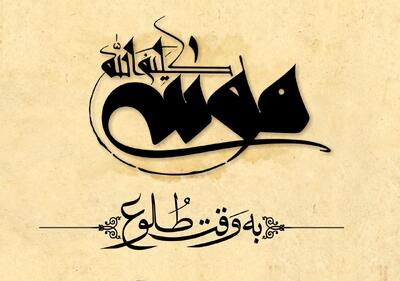 موسی کلیم‌الله
به وقت طلوع